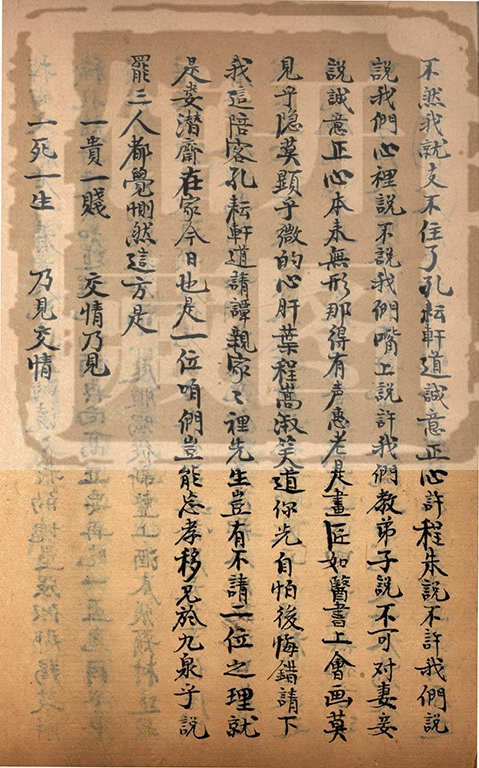 不然我就支不住了孔耘軒道誠意正心許程朱說不許我們說
說我們心裡說不說我們嘴上說許我們教弟子說不可对妻妾
說誠意正心本来無形那得有声惠老是畫匠如醫書上會画莫
見乎隐莫顯乎微的心肝葉程嵩淑笑道你先自怕後悔錯請下
我這陪客孔耘軒道請譚親家々裡先生豈有不請二位之理就
是娄潛齋在家今日也是一位咱們豈能忘孝移兄於九泉乎說
罷三人都覺惻然這方是
一貴一賤 交情乃見
一死一生 乃見交情